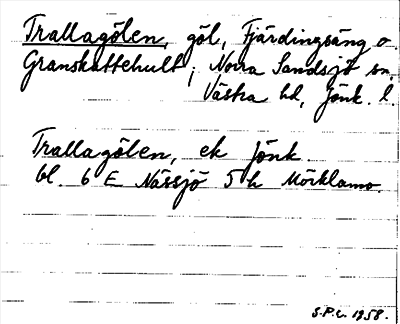 Trallagölen, göl, Fjärdingsäng o.
Granskattehult, Norra Sandsjö sn,
Västra hd, Jönk. l.
Trallagölen, ek Jönk.
bl. 6 E Nässjö 5 h Mörklamo.
S.P-c. 1958.